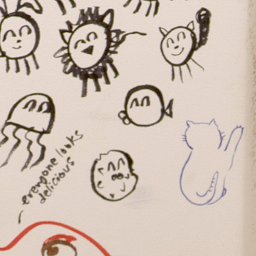 everyone looks
delicious